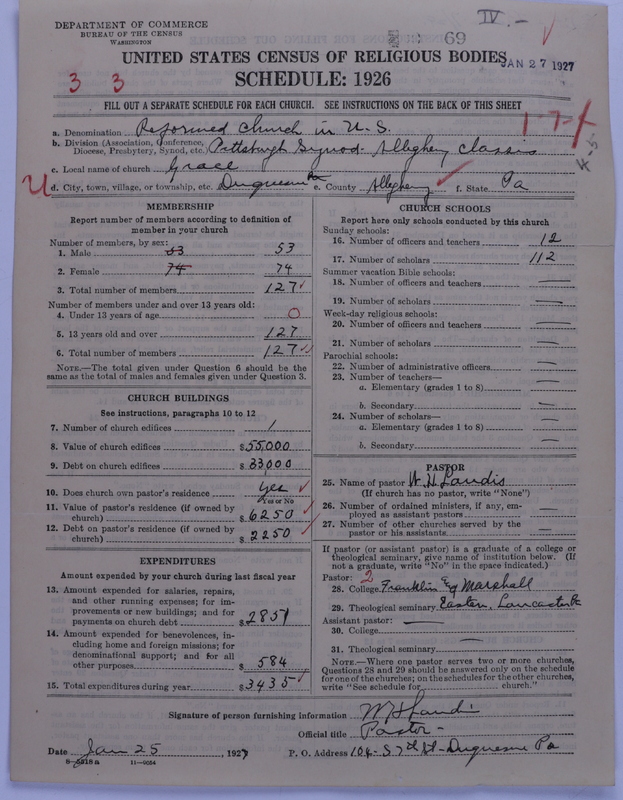 DEPARTMENT OF COMMERCE
BUREAU OF THE CENSUS
WASHINGTON
IV.-
69
UNITED STATES CENSUS OF RELIGIOUS BODIES
JAN 27 1927
3 3
SCHEDULE: 1926
FILL OUT A SEPARATE SCHEDULE FOR EACH CHURCH. SEE INSTRUCTIONS ON THE BACK OF THIS SHEET
1-7-4
4-5
a. Denomination Reformed Church in U.S.
b. Division (Association, Conference, Diocese, Presbytery, Synod, etc.) Pittsburgh Synod. Allegheny Classis
c. Local name of church Grace
U d. City, town, village, or township, etc. Duquesne Pa e. County Allegheny f. State Pa
MEMBERSHIP
Report number of members according to definition of
member in your church
Number of members, by sex:
1. Male 53 53
2. Female 74 74
3. Total number of members 127
Number of members under and over 13 years old:
4. Under 13 years of age 0
5. 13 years old and over 127
6. Total number of members 127
NOTE.—The total given under Question 6 should be
same as the total of males and females given under Question 3.
CHURCH BUILDINGS
See instructions, paragraphs 10 to 12
7. Number of church edifices 1
8. Value of church edifices $55,000
9. Debt on church edifices $33,000
10. Does church own pastor's residence yes
Yes or No
11. Value of pastor's residence (if owned by
church) $6250
12. Debt on pastor's residence (if owned by
church) $2250
EXPENDITURES
Amount expended by your church during last fiscal year
13. Amount expended for salaries, repairs,
and other running expenses; for im-
provements or new buildings; and for
payments on church debt $2851
14. Amount expended for benevolences, in-
cluding home and foreign missions; for
denominational support; and for all
other purposes $584
15. Total expenditures during year $3435
CHURCH SCHOOLS
Report here only schools conducted by this church
Sunday schools:
16. Number of officers and teachers 12
17. Number of scholars 112
Summer vacation Bible schools:
18. Number of officers and teachers —
19. Number of scholars —
Week-day religious schools:
20. Number of officers and teachers —
21. Number of scholars —
Parochial schools:
22. Number of administrative officers —
23. Number of teachers—
a. Elementary (grades 1 to 8) —
b. Secondary —
24. Number of scholars—
a. Elementary (grades 1 to 8) —
b. Secondary —
PASTOR
25. Name of pastor W. H. Landis
(If church has no pastor, write "None")
26. Number of ordained ministers, if any, em-
ployed as assistant pastors —
27. Number of other churches served by the
pastor or his assistants —
If pastor (or assistant pastor) is a graduate of a college or
theological seminary, give name of institution below. (If
not a graduate, write "No" in the space indicated.)
Pastor: 2
28. College Franklin & Marshall
29. Theological seminary Eastern, Lancaster Pa
Assistant pastor: —
30. College
31. Theological seminary —
NOTE.—Where one pastor serves two or more churches,
Questions 28 and 29 should be answered only on the schedule
for one of the churches; on the schedules for the other churches,
write "See schedule for church."
Signature of person furnishing information W H Landis
Official title Pastor
Date Jan 25, 1927 P. O. Address 104-S 7th St-Duquesne Pa
11-9064